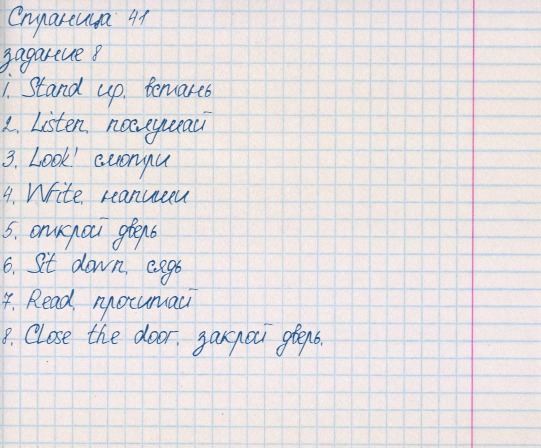 Страница 41
задание 8
1. Stand up. встань
2. Listen. послушай
3. Look! смотри
4. Write. напиши
5. открой дверь
6. Sit down. сядь
7. Read. прочитай
8. Close the door. закрой дверь.